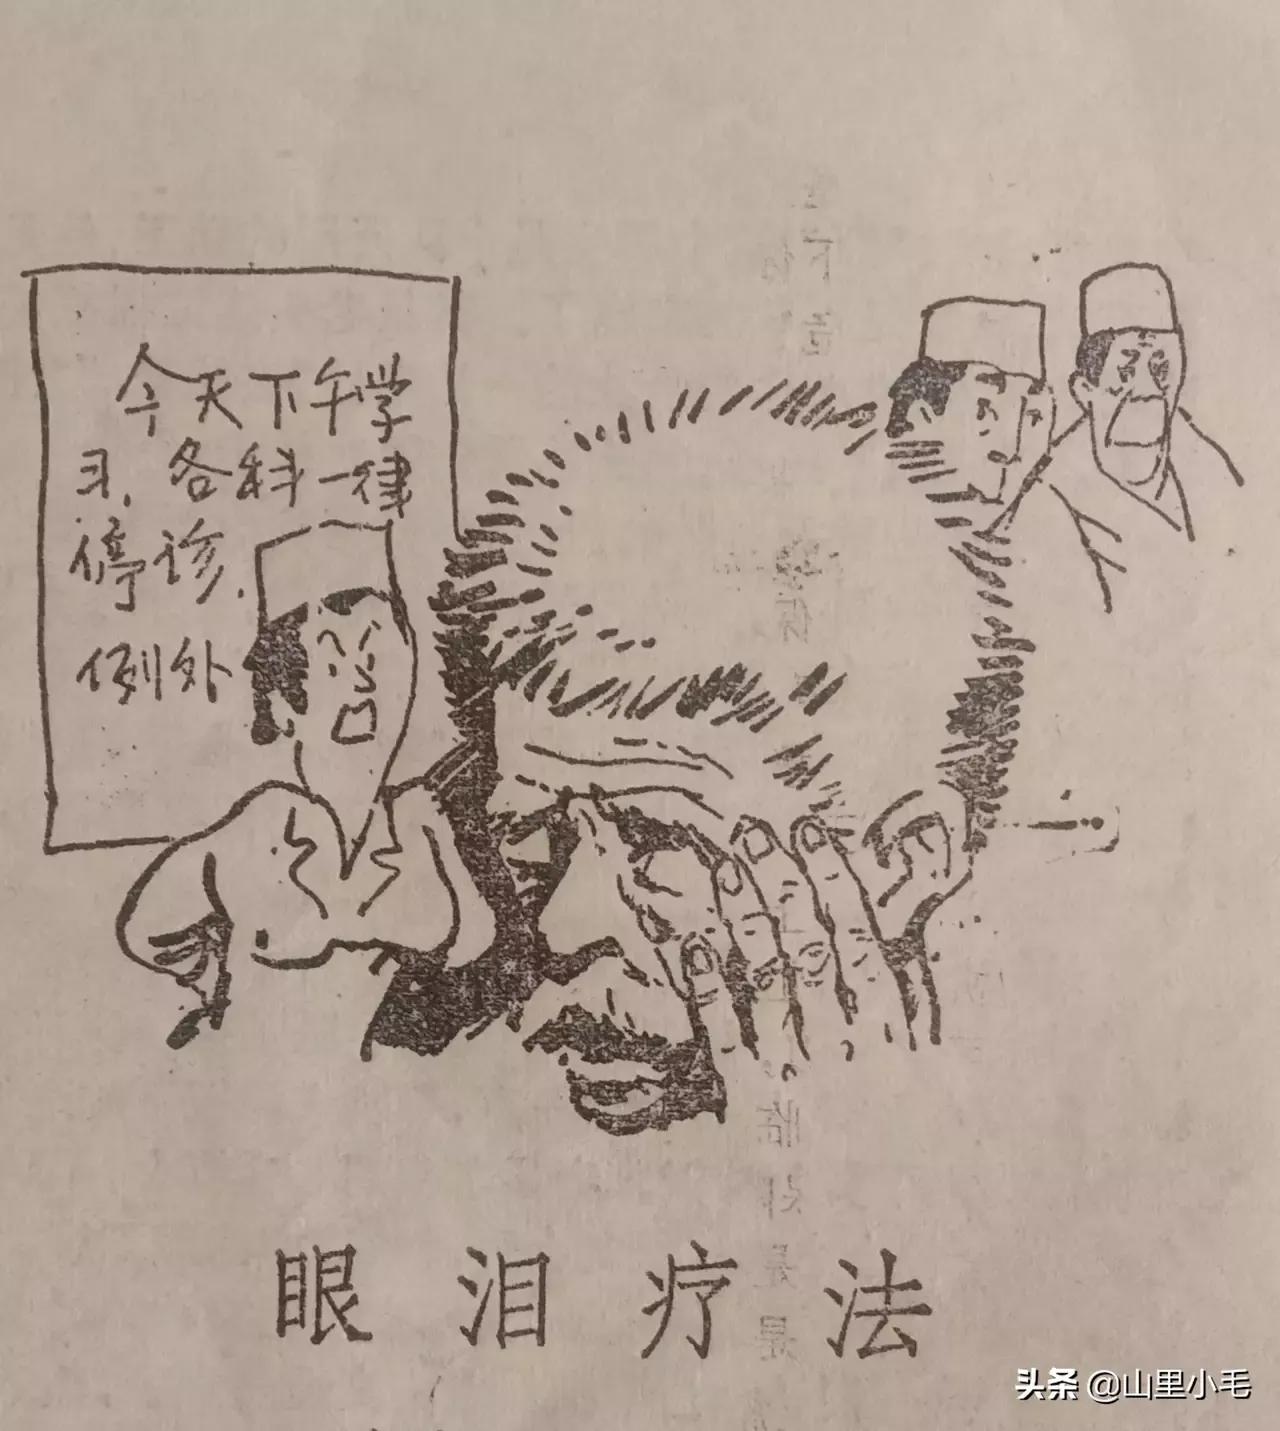 今天下午学
习,各科一律
停诊.
例外
眼泪疗法
头条 @山里小毛